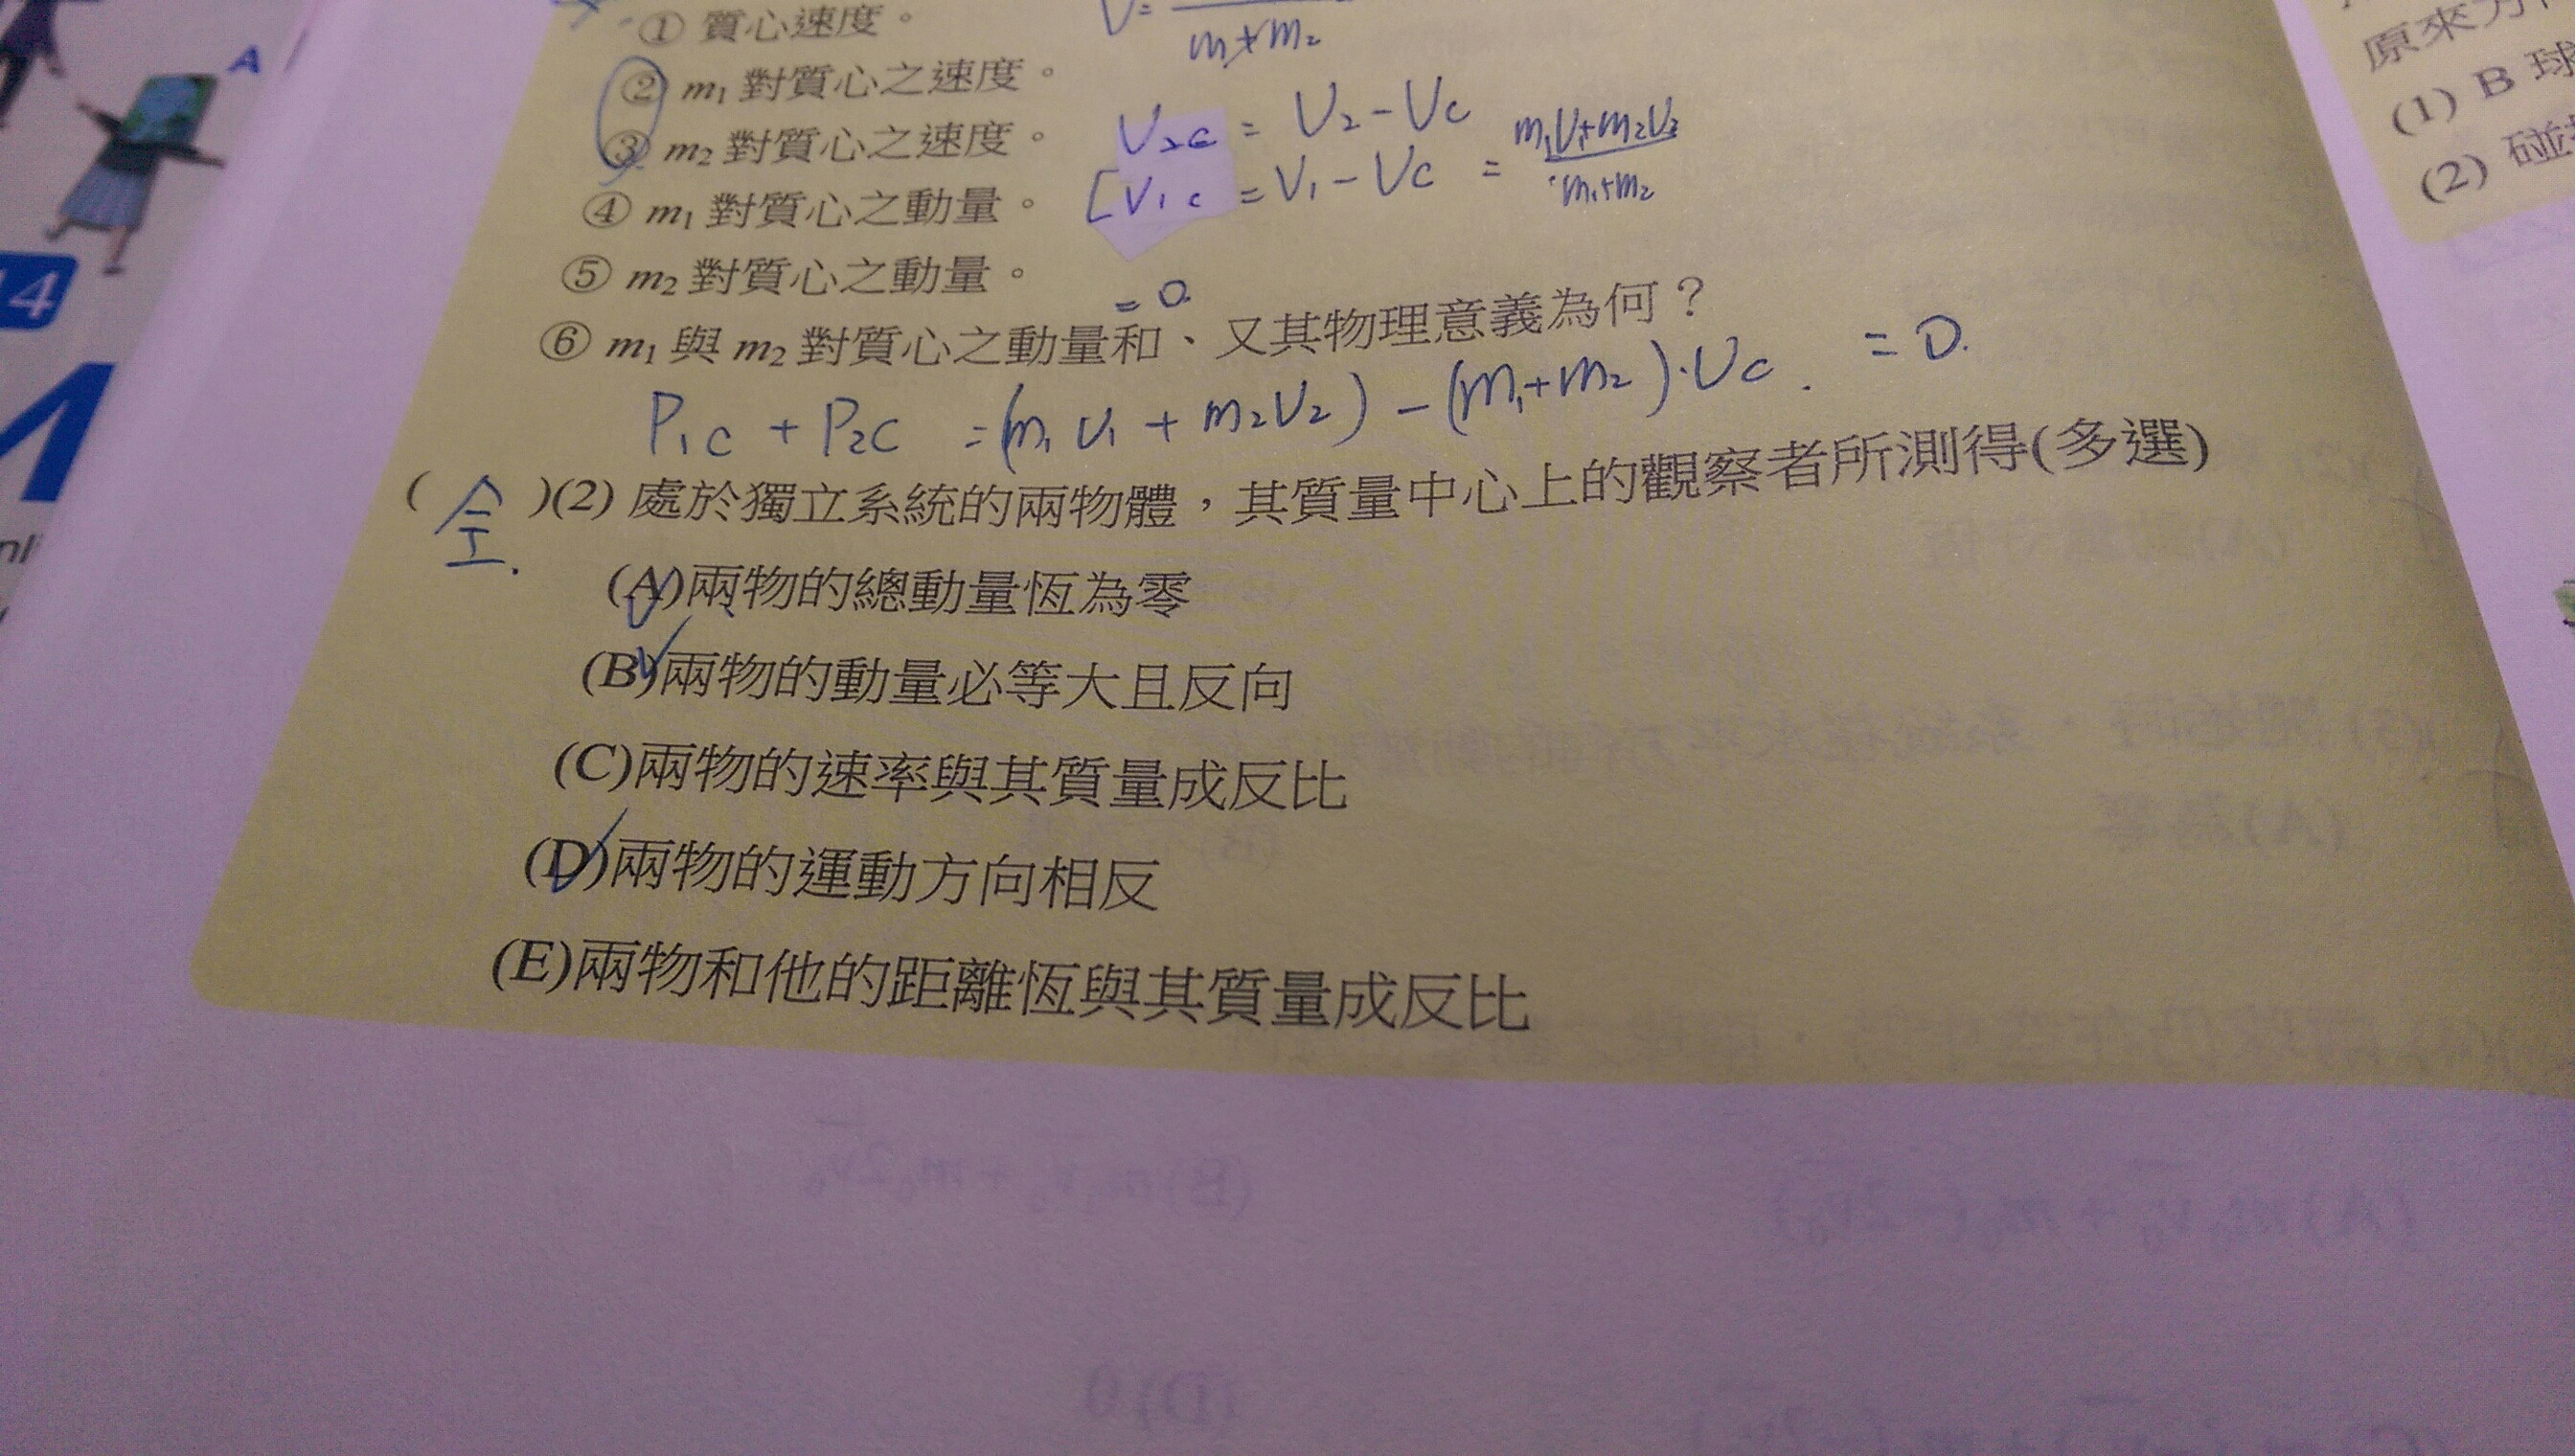 ① 質心速度。 V=
m₁+m₂
② m₁ 對質心之速度。
③ m₂ 對質心之速度。 V₂c = V₂-Vc
④ m₁ 對質心之動量。 [V₁c = V₁-Vc = m₁V₁+m₂V₂ / m₁+m₂
⑤ m₂ 對質心之動量。
=0.
⑥ m₁ 與 m₂ 對質心之動量和、又其物理意義為何?
P₁c + P₂c =(m₁V₁+m₂V₂)-(m₁+m₂)·Vc. =0.
( 全. )(2) 處於獨立系統的兩物體,其質量中心上的觀察者所測得(多選)
(A)兩物的總動量恆為零
(B)兩物的動量必等大且反向
(C)兩物的速率與其質量成反比
(D)兩物的運動方向相反
(E)兩物和他的距離恆與其質量成反比
A
14
原來方
(1) B 球
(2) 碰